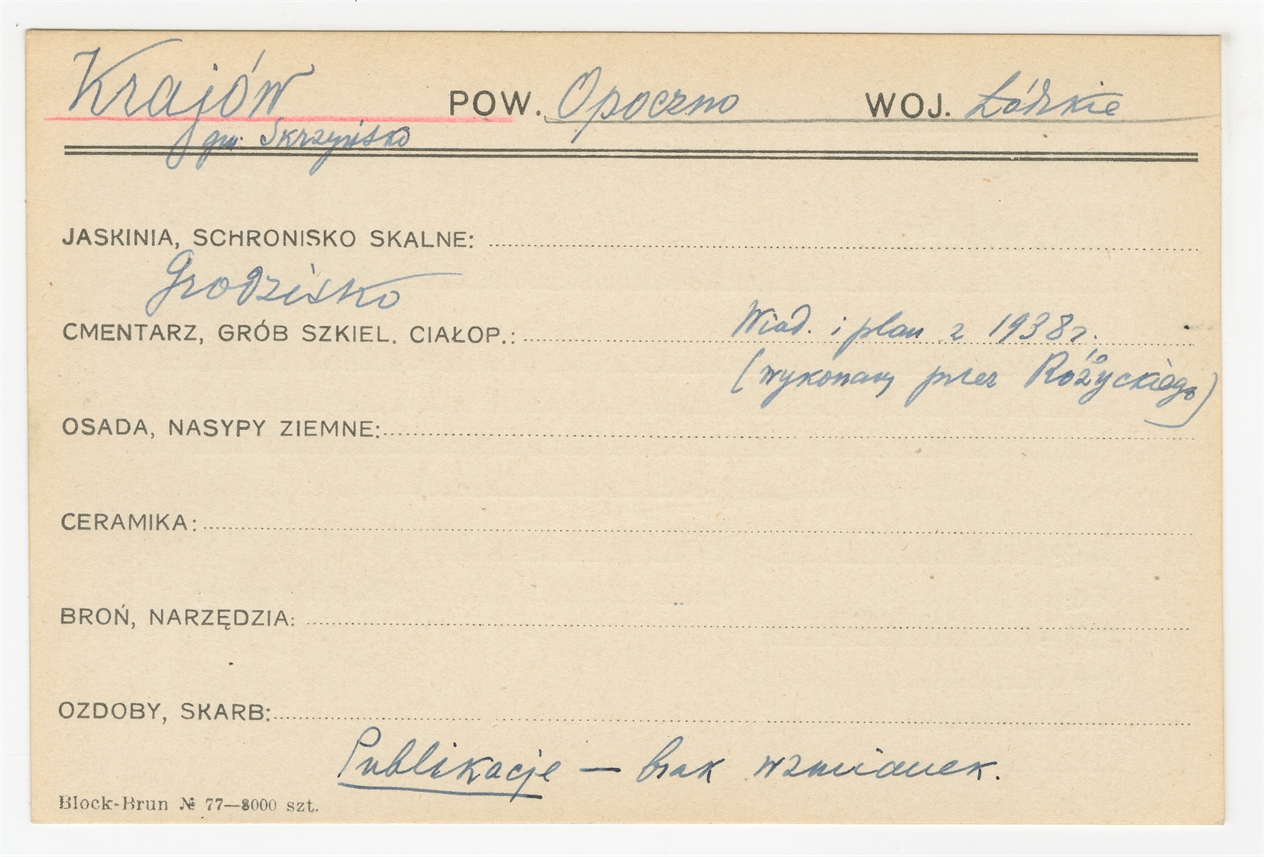 Krajów POW. Opoczno WOJ. Łódzkie
gm. Skrzyńsko
JASKINIA, SCHRONISKO SKALNE:
Grodzisko
CMENTARZ, GRÓB SZKIEL. CIAŁOP.: Wiad. i plan z 1938 r.
(wykonany przez Różyckiego)
OSADA, NASYPY ZIEMNE:
CERAMIKA:
BROŃ, NARZĘDZIA:
OZDOBY, SKARB:
Publikacje — brak wzmianek.
Block-Brun № 77—8000 szt.